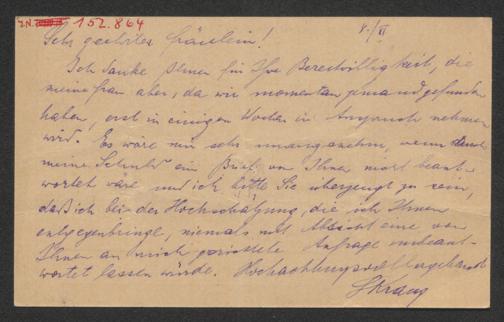 I.N. 152.864
Sehr geehrtes Fräulein! 8./VI
Ich danke Ihnen für Ihre Bereitwilligkeit, die
meine Frau aber, da wir momentan jemand gefunden
haben, erst in einigen Wochen in Anspruch nehmen
wird. Es wäre mir sehr unangenehm, wenn durch
meine Schuld ein Brief von Ihnen nicht beant-
wortet wäre und ich bitte Sie überzeugt zu sein,
daß ich bei der Hochschätzung, die ich Ihnen
entgegenbringe, niemals mit Absicht eine von
Ihnen an mich gerichtete Anfrage unbeant-
wortet lassen würde. Hochachtungsvoll ergebenst